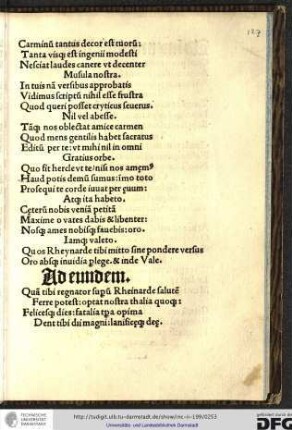 127
Carminũ tantus decor est tuorũ:
Tanta visq̃ est ingenii modesti
Nesciat laudes canere vt decenter
Musula nostra.
In tuis nã versibus approbatis
Vidimus scriptũ nihil esse frustra
Quod queri posset cryticus seuerus.
Nil vel abesse.
Tãq̃ nos oblectat amice carmen
Quod mens gentilis habet sacratus
Editũ per te: vt mihi nil in omni
Gratius orbe.
Quo sit herde vt te/nisi nos amẽmꝰ
Haud potis demũ sumus: imo toto
Prosequi te corde iuuat per euum:
Atq̃ ita habeto.
Ceterũ nobis veniã petitã
Maxime o vates dabis & libenter:
Nosq̃ ames nobisq̃ fauebis: oro.
Iamq̃ valeto.
Quos Rheynarde tibi mitto sine pondere versus
Oro absq̃ inuidia plege. & inde Vale.
Ad eundem.
Quã tibi regnator supũ Rheinarde salutẽ
Ferre potest: optat nostra thalia quoq̃:
Felicesq̃ dies: fatalia tꝑa opima
Dent tibi dii magni: lanificeq̃ deę.
TECHNISCHE
UNIVERSITÄT
DARMSTADT
http://tudigit.ulb.tu-darmstadt.de/show/inc-iv-199/0253
Universitäts- und Landesbibliothek Darmstadt
gefördert durch die
DFG